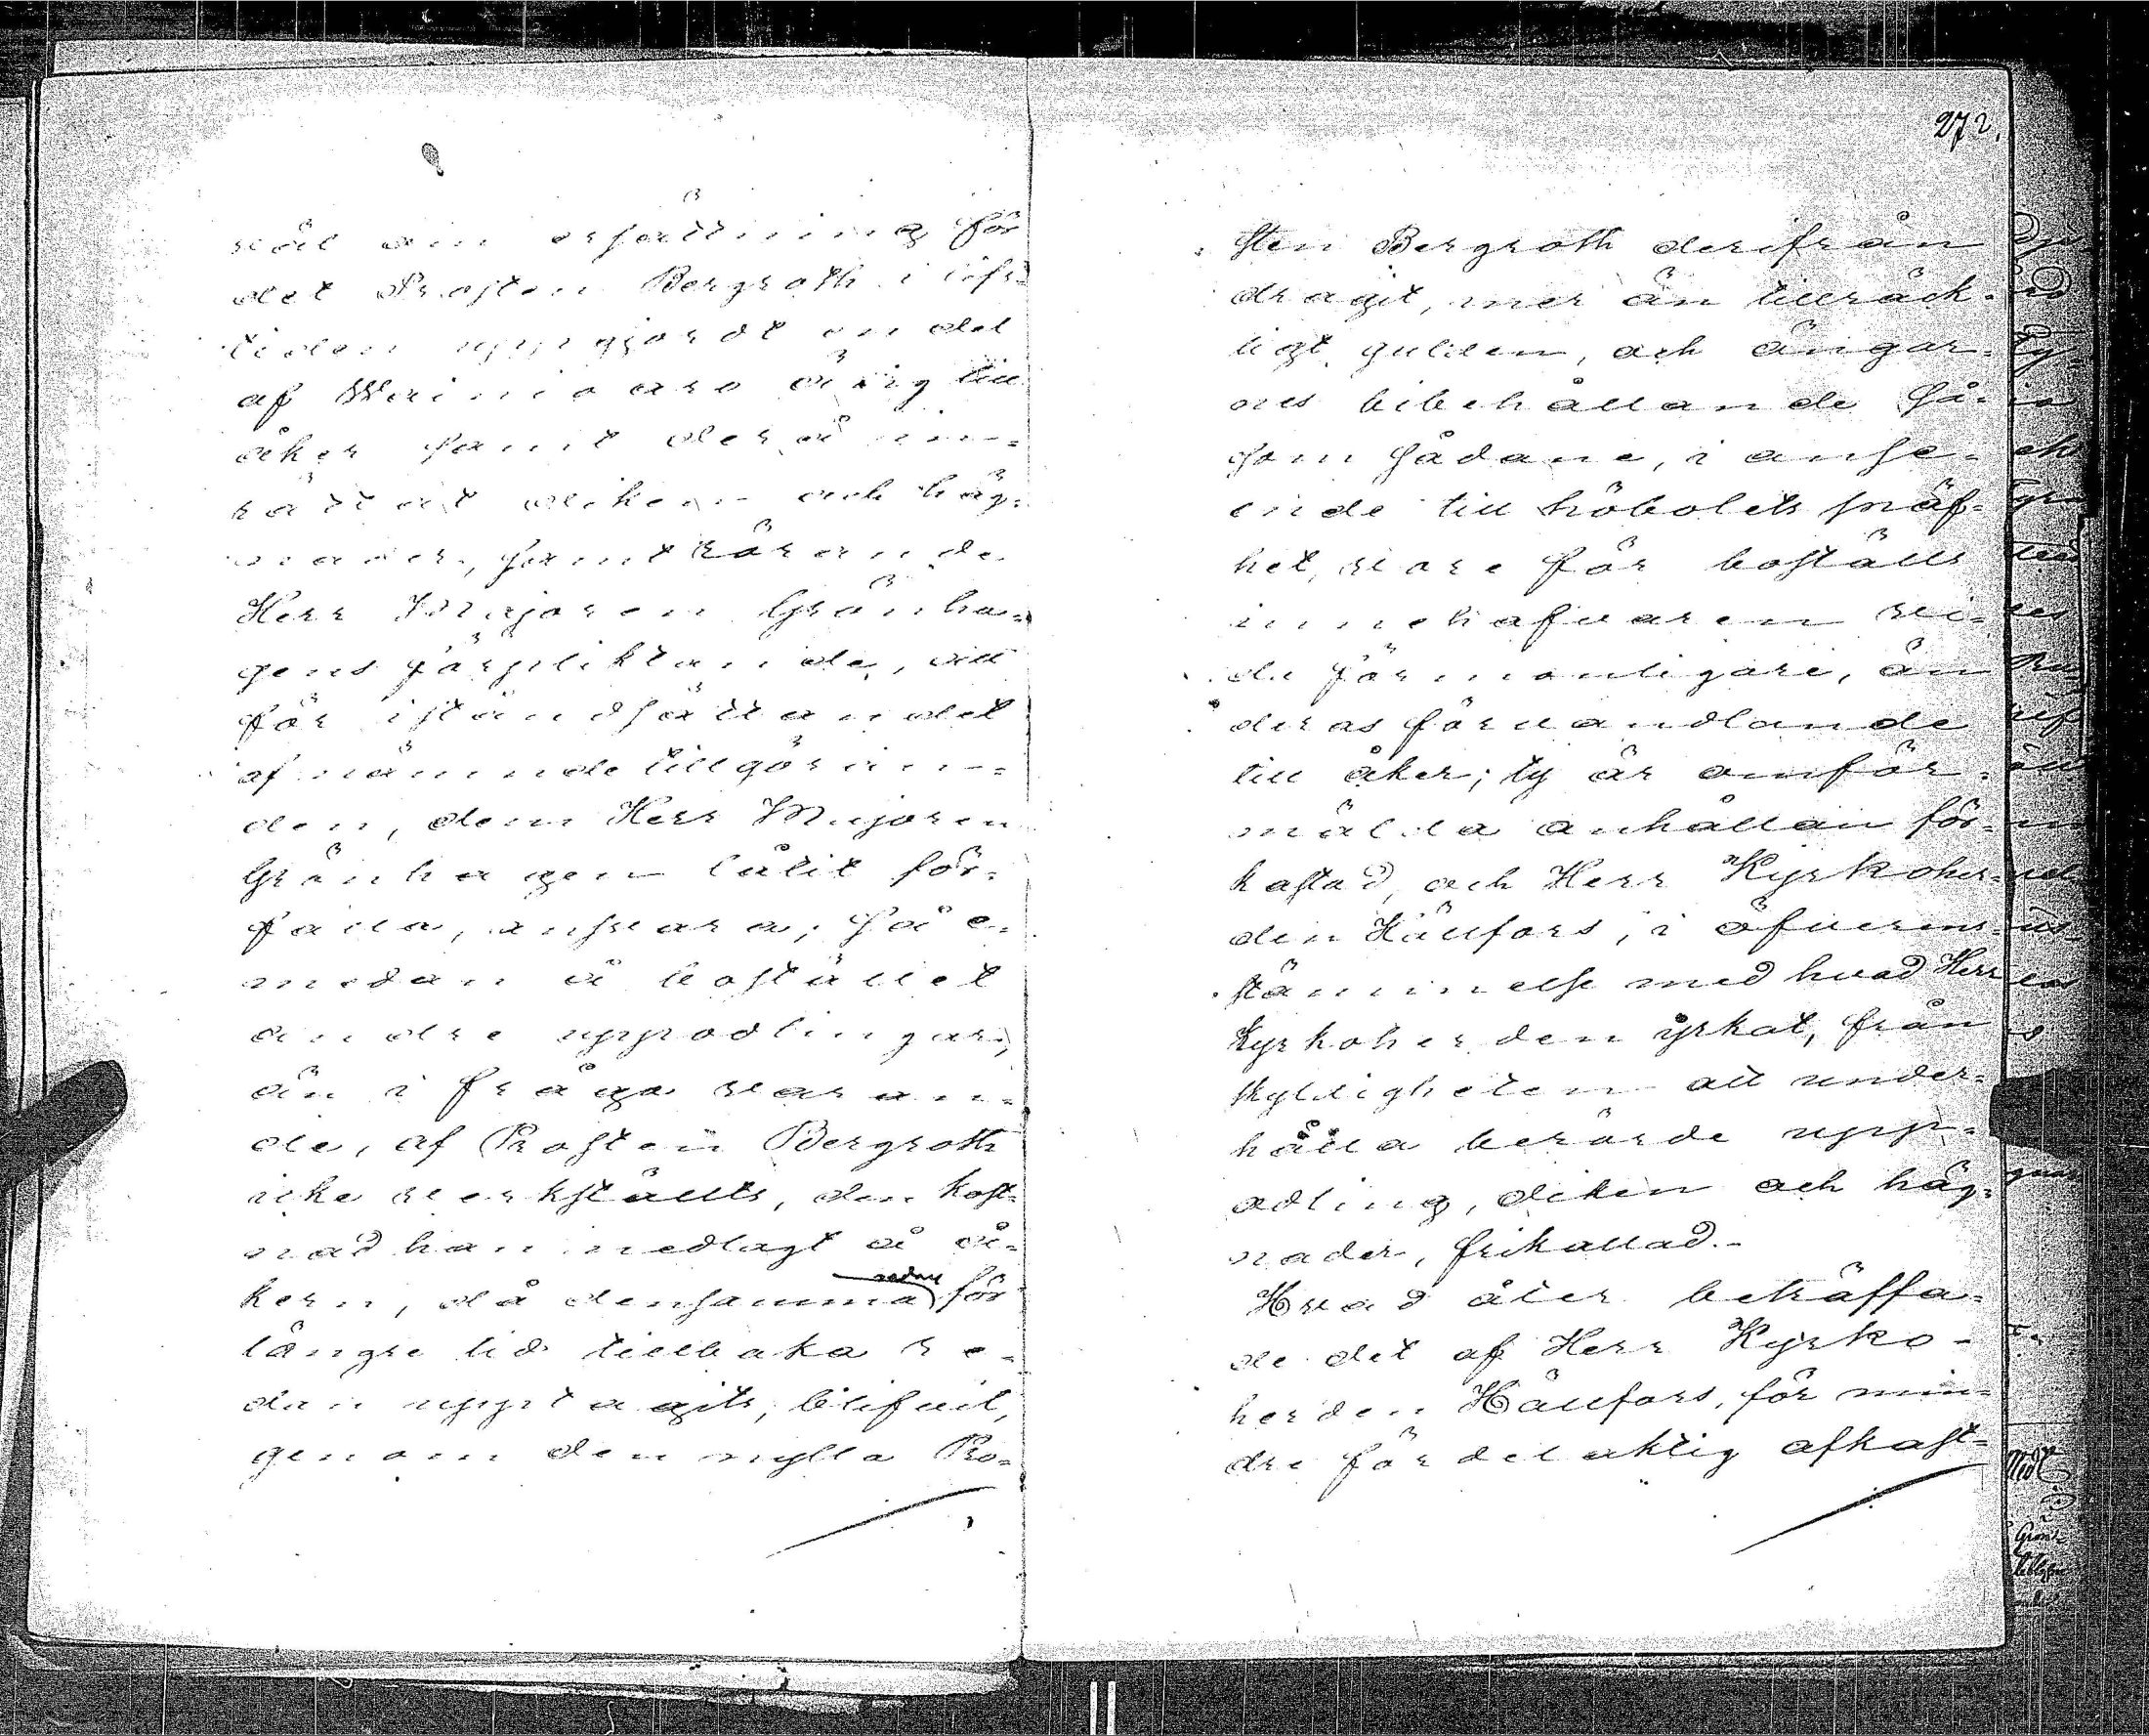 272.
väl om ersättning för
det Prosten Bergroth i lifs-
tiden uppgjordt en del
af Wainioaro äng till
åker samt derå in-
rättat diken och häg-
nader, samt rörande
Herr Majoren Grönha-
gens förpliktande, att
för iståndsättandet
af nämnde tillgörin-
den, dem Herr Majoren
Grönhagen låtit för-
falla, ansvara; så e-
medan å bostället
andre upprodlingar,
än i fråga varan-
de, af Prosten Bergroth
icke verkställts, den kost-
nad han nedlagt å å-
kern, då densamma redan för
längre tid tillbaka re-
dan upptagits, blifvit,
genom den nytta Pro-
sten Bergroth derifrån
dragit, mer än tillräck-
ligt gulden, och ängar-
nes bibehållande så-
som sådane, i anse-
ende till höbolets knap-
het, vore för boställs
innehafvaren vi-
da förmonligare, än
deras förvandlande
till åker; ty är omför-
mälda anhållan för-
kastad, och Herr Kyrkoher-
den Hällfors, i öfverens-
stämmelse med hvad Herr
Kyrkoherden yrkat, från
skyldigheten att under-
hålla berörde upp-
odling, diken och häg-
nader, frikallad.-
Hvad åter beträffa-
de det af Herr Kyrko-
herden Hällfors, för min-
dre fördelaktig afkast-